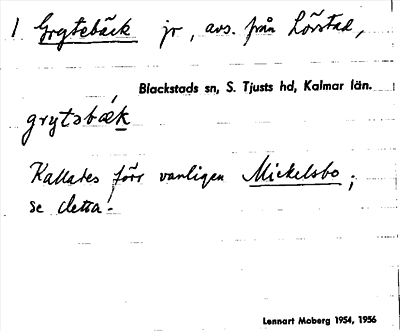 1 Grytebäck jr, avs. från Lövstad,
Blackstads sn, S. Tjusts hd, Kalmar län.
grytsbæk
Kallades förr vanligen Mickelsbo;
se detta!
Lennart Moberg 1954, 1956